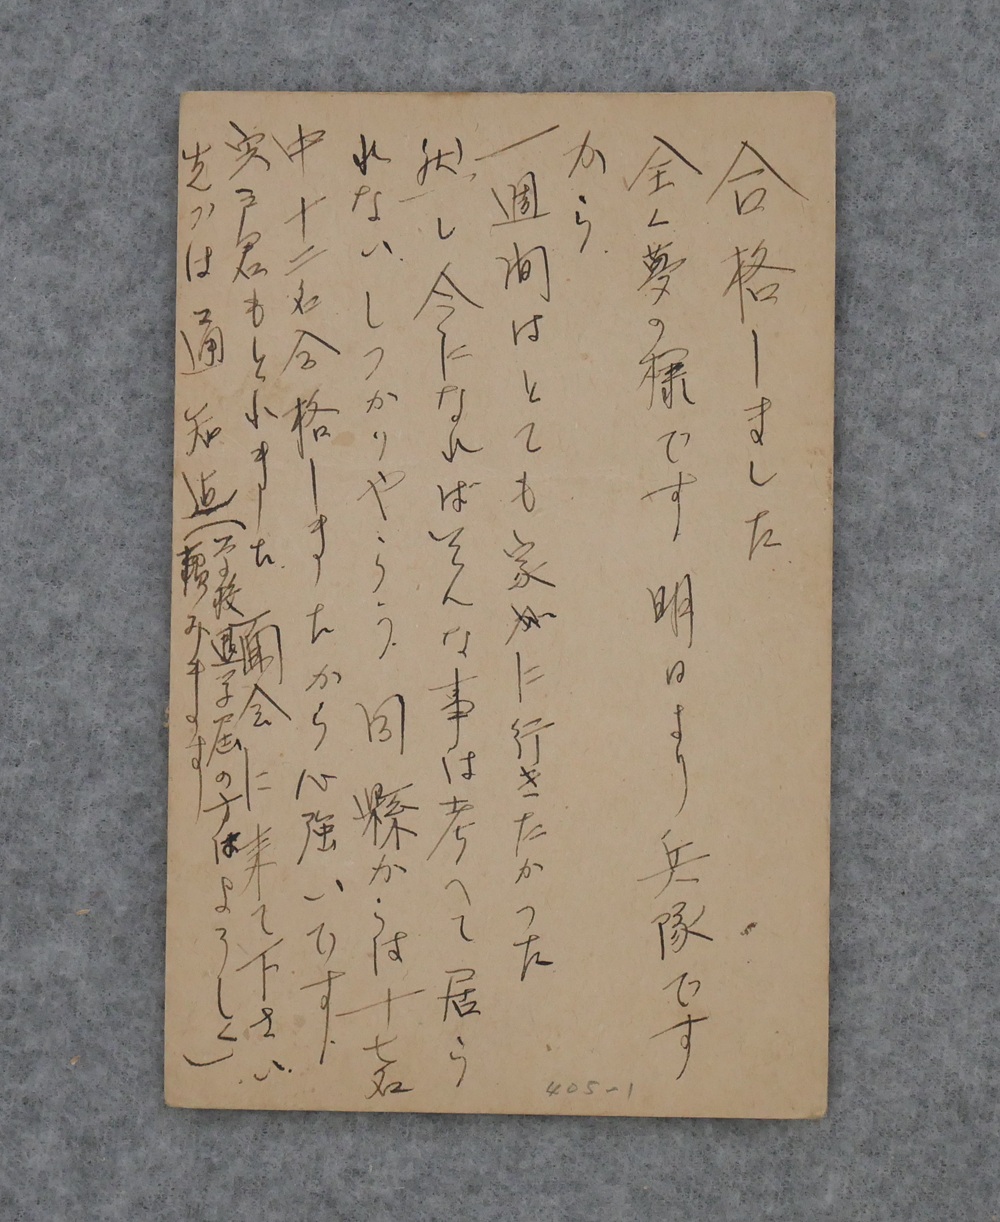 合格しました
全く夢の様です 明日より兵隊です
から
一週間はとても家に行きたかった
然し今になればそんな事は考へて居ら
れない、しっかりやらう 同縣からは十七名
中十二名合格しましたから心強いです
宍戸君もとれました 面会に来て下さい
先づは通知迄(学校退学届の方はよろしく
頼みます)
405-1